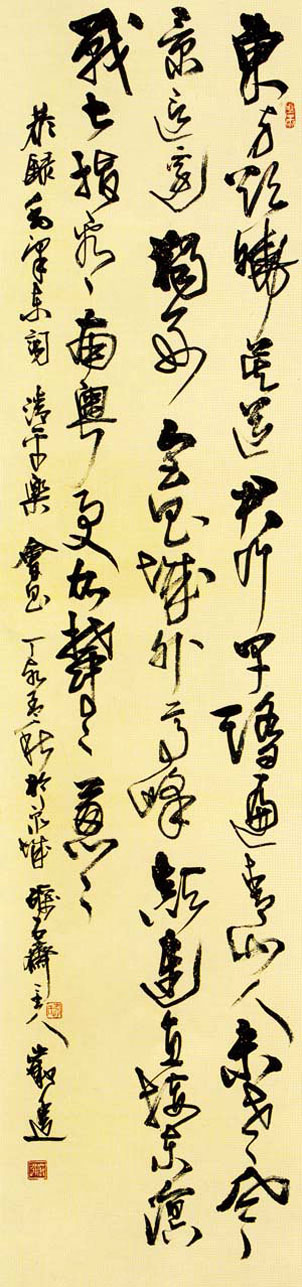 東方欲曉莫道君行早踏遍青山人未老風
景這邊獨好會昌城外高峰顛連直接東溟
戰士指看南粵更加鬱々蔥々
恭錄毛澤東詞 清平樂 會昌 丁亥秋於泉城 石齋主人